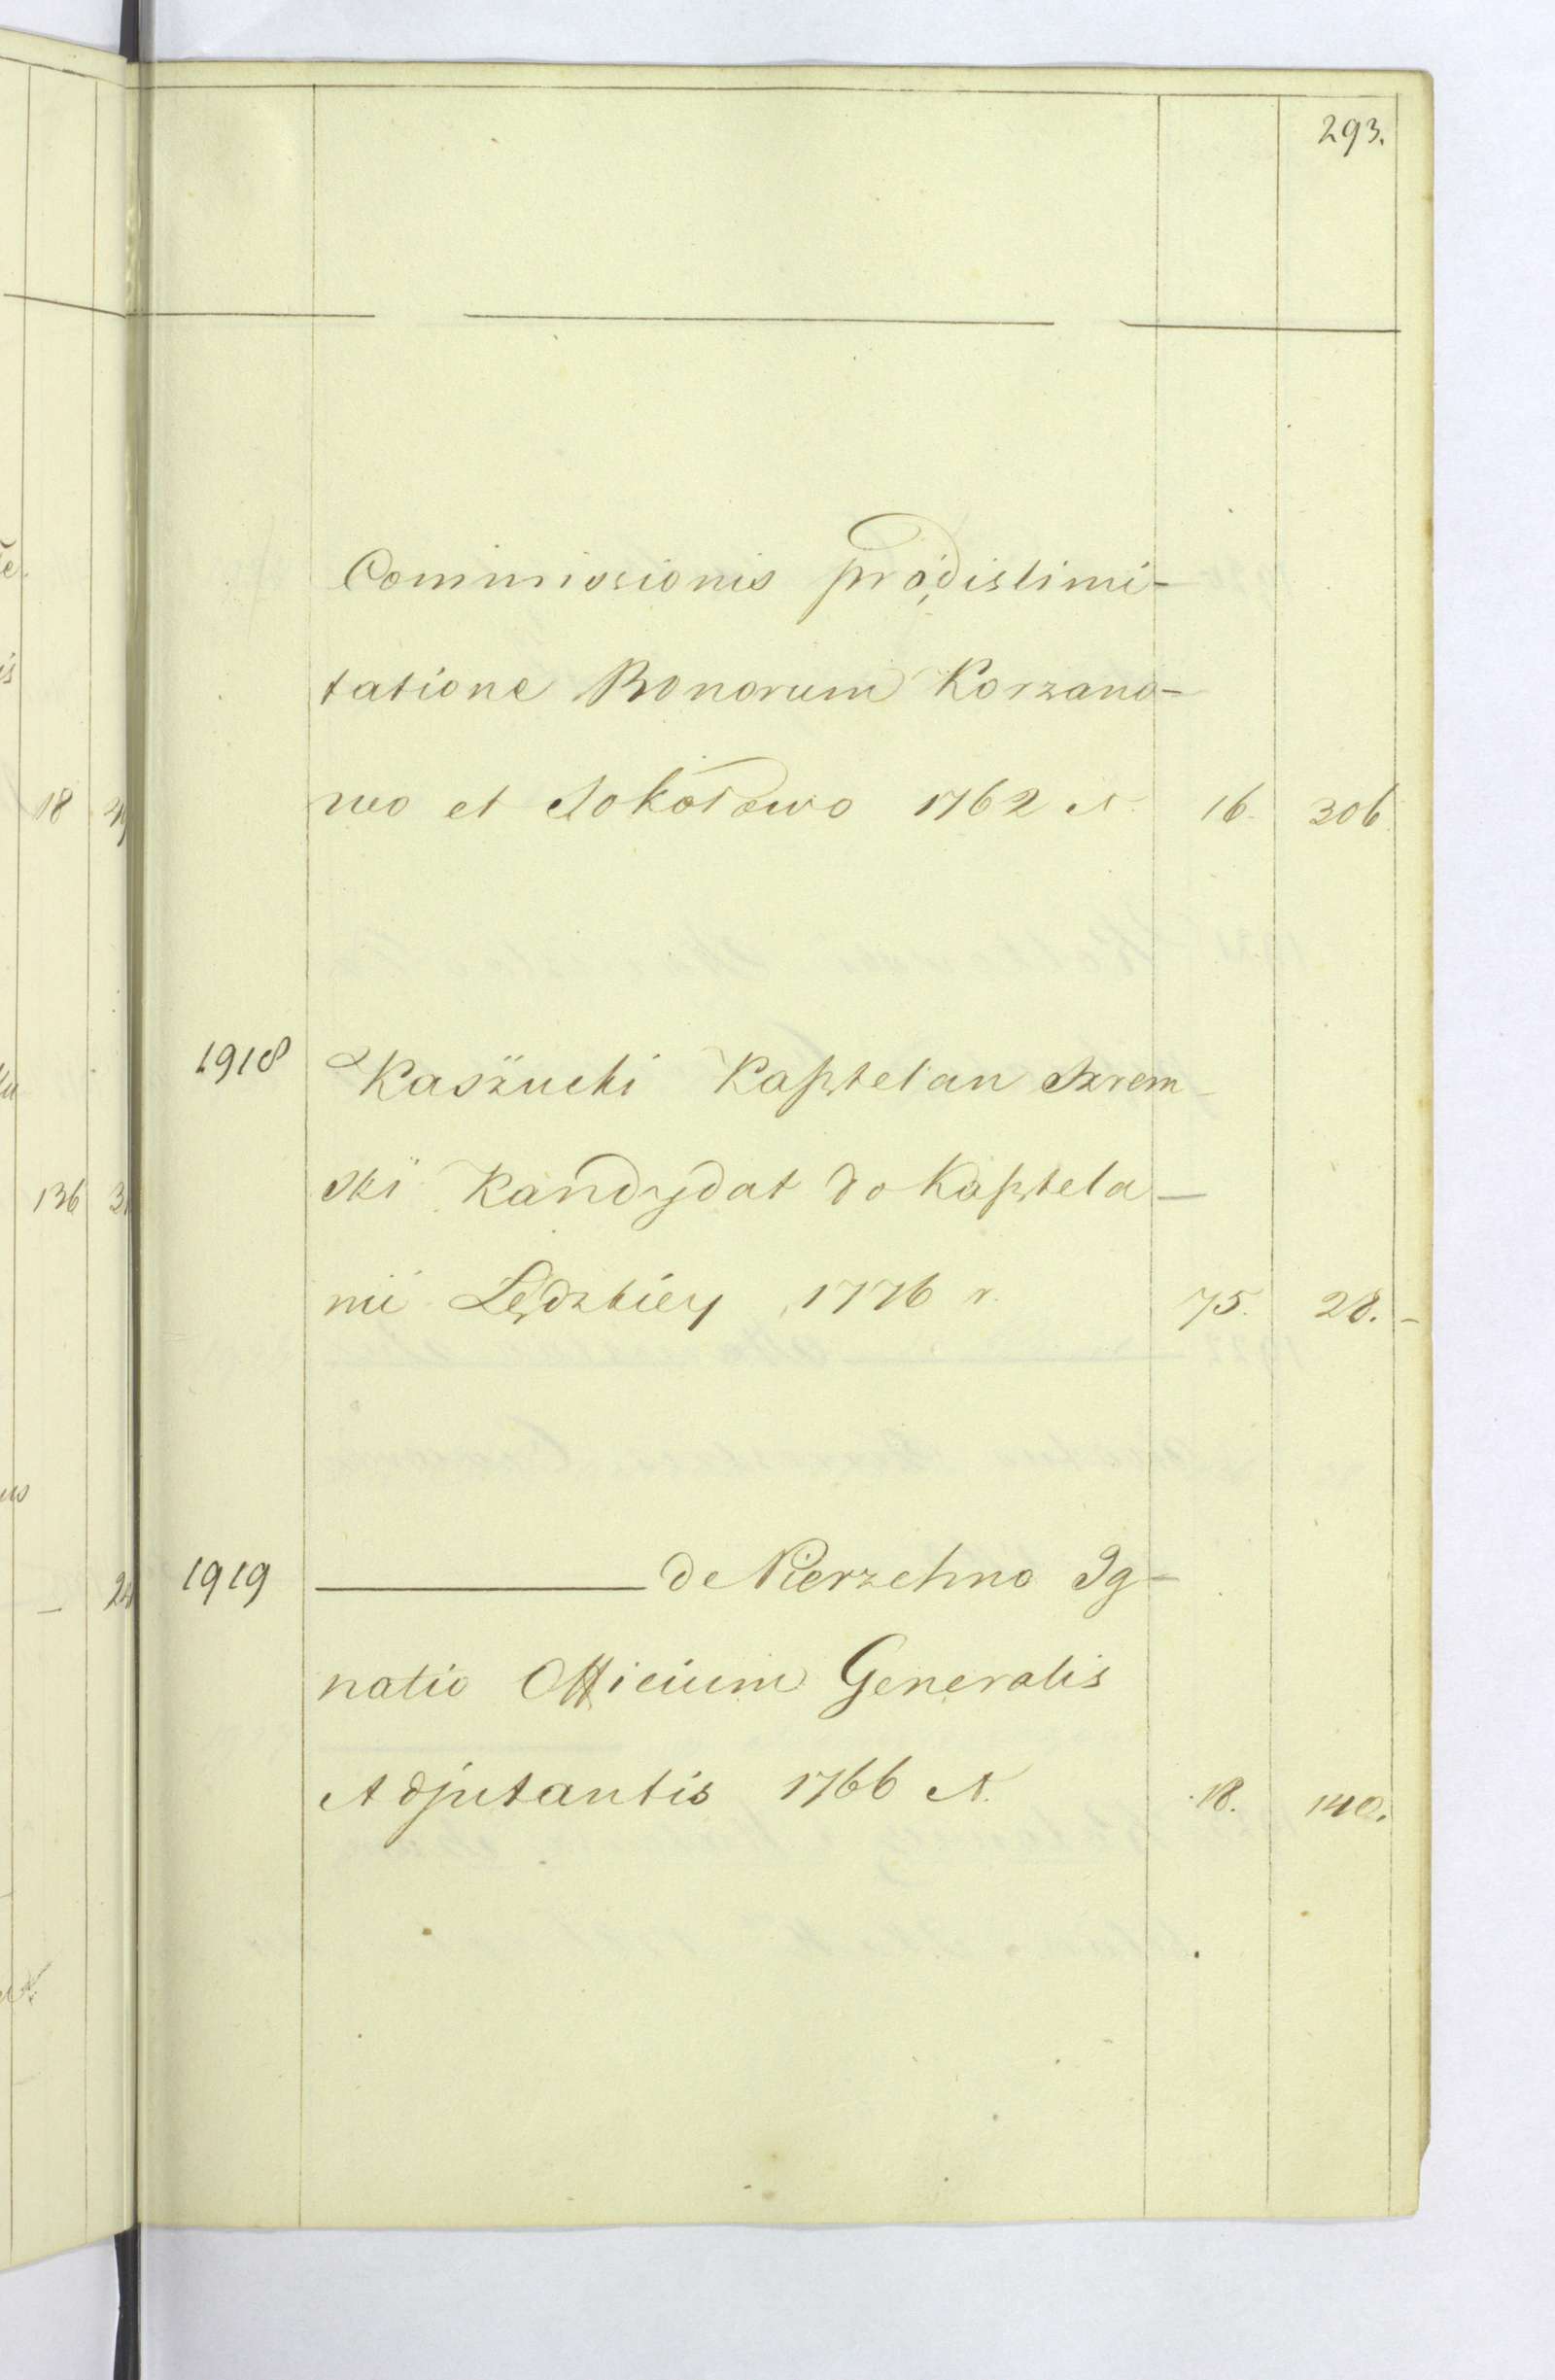 293.
Commissionis pro distimi-
tatione Bonorum Korzano-
wo et Sokołowo 1762 A. 16. 306.
1918 Kaszucki Kasztelan Szrem-
ski Kandydat do Kasztela-
nii Lędzkiey 1776 r. 75. 28.
1919 ——— de Nierzchno Ig-
natio Officium Generalis
Adjutantis 1766 A. 18. 140.
18
136